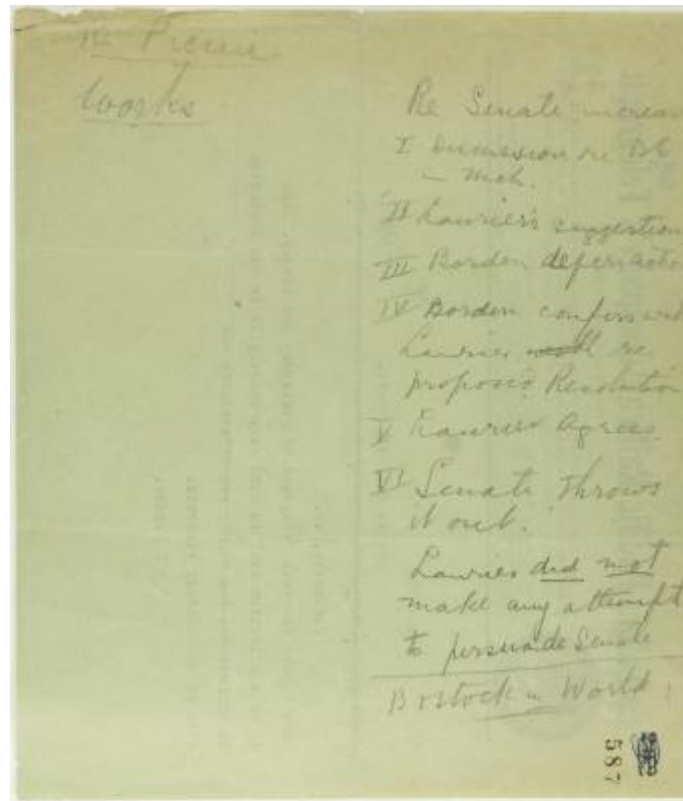 Re Picnic
works
Re Senate increas
I Discussion re BC
Mch.
II Laurier's suggestion
III Borden defers actio
IV Borden confers with
Laurier re
proposed Resolution
V Laurier Agrees.
VI Senate Throws
it out.
Laurier did not
make any attempt
to persuade Senate
Bostock in World
587